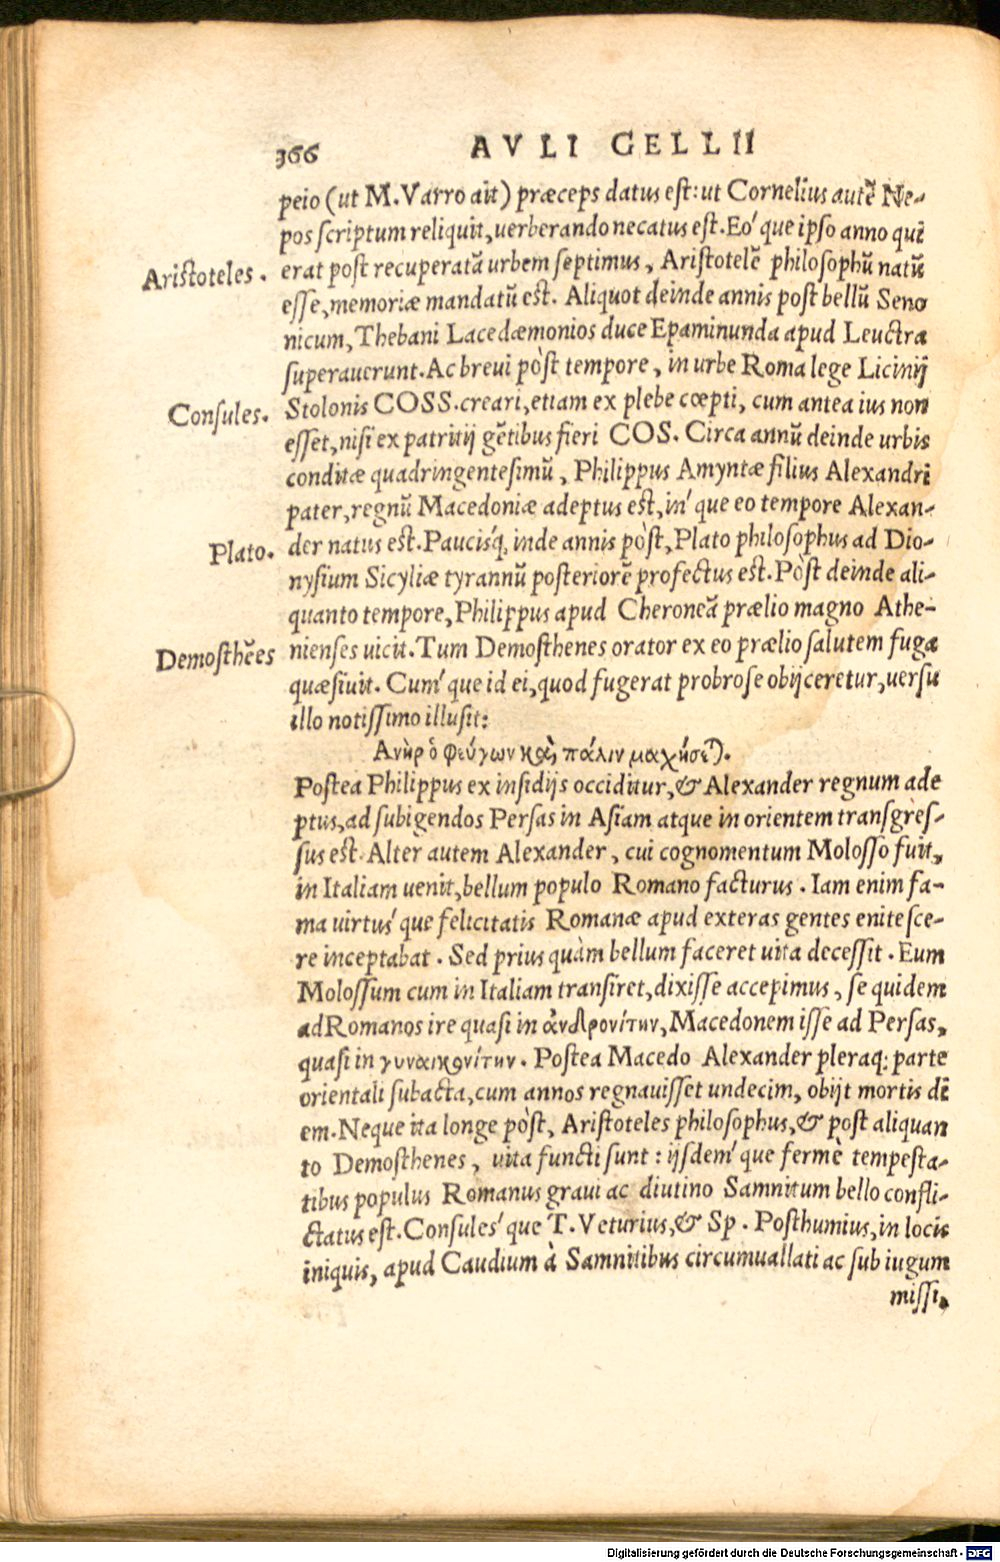 366 AVLI GELLII
peio (ut M. Varro ait) præceps datus est: ut Cornelius autē Ne-
pos scriptum reliquit, uerberando necatus est. Eo´que ipso anno qui
Aristoteles. erat post recuperatā urbem septimus, Aristotelē philosophū natū
esse, memoriæ mandatū est. Aliquot deinde annis post bellū Seno
nicum, Thebani Lacedæmonios duce Epaminunda apud Leuctra
superauerunt. Ac breui pòst tempore, in urbe Roma lege Licinij
Consules. Stolonis COSS. creari, etiam ex plebe cœpti, cum antea ius non
esset, nisi ex patritij gētibus fieri COS. Circa annū deinde urbis
conditæ quadringentesimū, Philippus Amyntæ filius Alexandri
pater, regnū Macedoniæ adeptus est, in´que eo tempore Alexan-
Plato. der natus est. Paucis´q; inde annis pòst, Plato philosophus ad Dio-
nysium Sicyliæ tyrannū posteriorē profectus est. Pòst deinde ali-
quanto tempore, Philippus apud Cheroneā prælio magno Athe-
Demosthēes nienses uicit. Tum Demosthenes orator ex eo prælio salutem fuga
quæsiuit. Cum´que id ei, quod fugerat probrose obijceretur, uersu
illo notissimo illusit:
Ανὴρ ὁ φεύγων καὶ πάλιν μαχήσεται.
Postea Philippus ex insidijs occiditur, & Alexander regnum ade
ptus, ad subigendos Persas in Asiam atque in orientem transgres-
sus est. Alter autem Alexander, cui cognomentum Molosso fuit,
in Italiam uenit, bellum populo Romano facturus. Iam enim fa-
ma uirtus´que felicitatis Romanæ apud exteras gentes enitesce-
re inceptabat. Sed prius quàm bellum faceret uita decessit. Eum
Molossum cum in Italiam transiret, dixisse accepimus, se quidem
ad Romanos ire quasi in ἀνδρονίτην, Macedonem isse ad Persas,
quasi in γυναικονίτην. Postea Macedo Alexander pleraq; parte
orientali subacta, cum annos regnauisset undecim, obijt mortis di
em. Neque ita longe pòst, Aristoteles philosophus, & post aliquan
to Demosthenes, uita functi sunt: ijsdem´que fermè tempesta-
tibus populus Romanus graui ac diutino Samnitum bello confli-
ctatus est. Consules´que T. Veturius, & Sp. Posthumius, in locis
iniquis, apud Caudium à Samnitibus circumuallati ac sub iugum
missi,
Digitalisierung gefördert durch die Deutsche Forschungsgemeinschaft - DFG